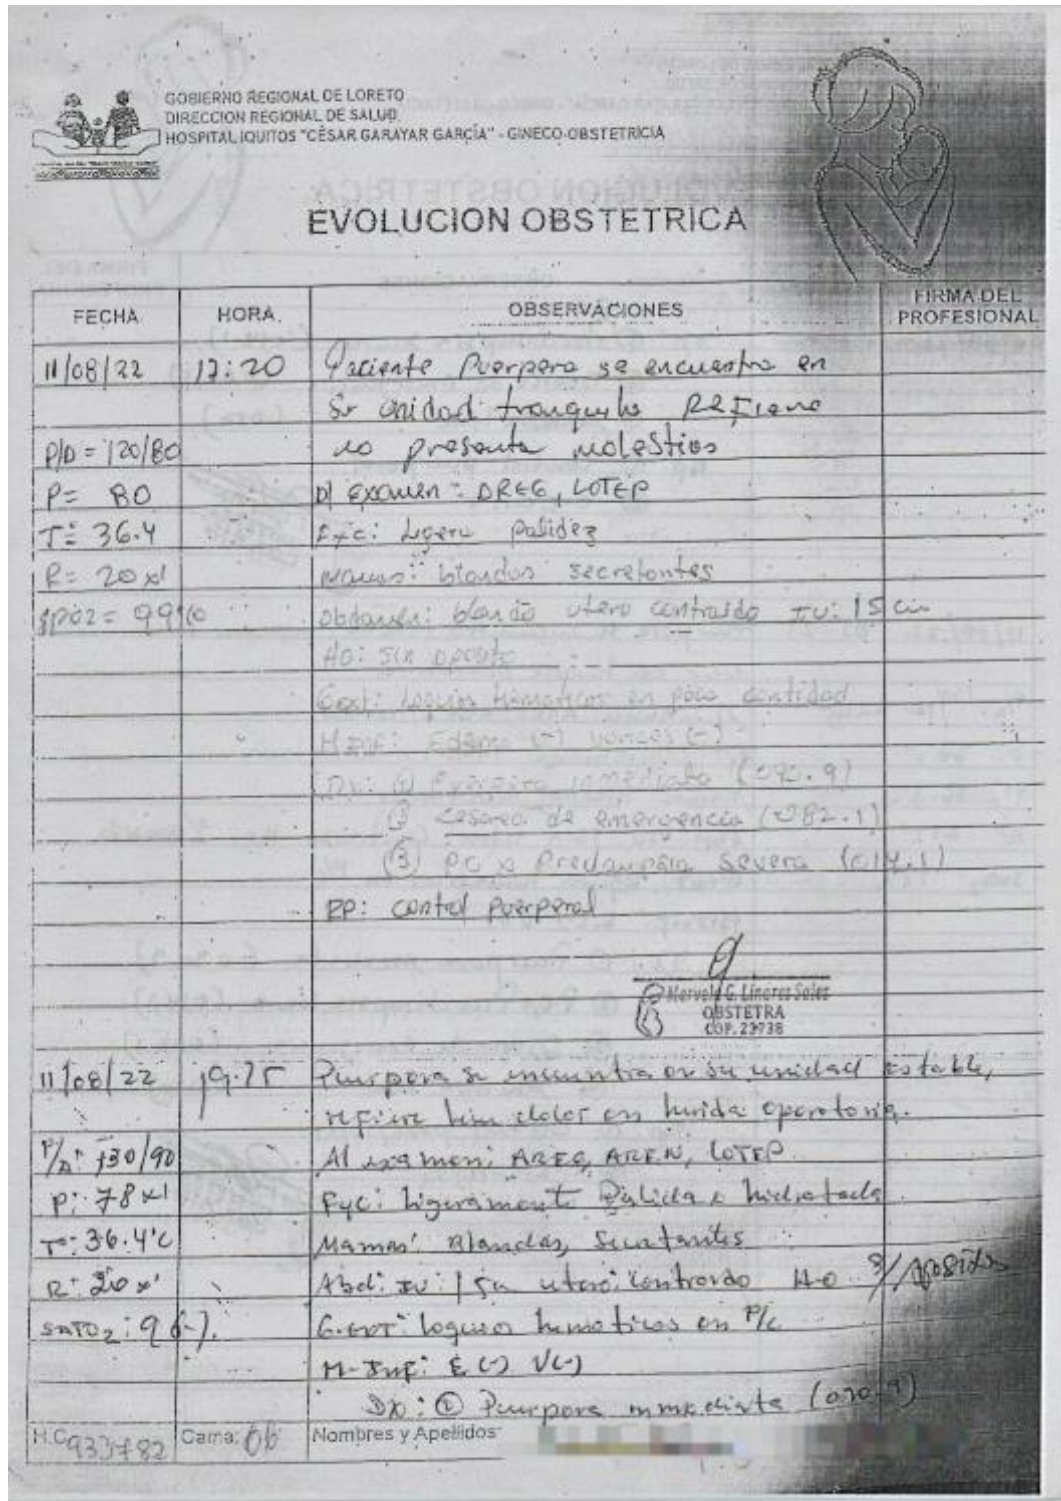 GOBIERNO REGIONAL DE LORETO
DIRECCION REGIONAL DE SALUD
HOSPITAL IQUITOS "CÉSAR GARAYAR GARCÍA" - GINECO-OBSTETRICIA
EVOLUCION OBSTETRICA
FECHA HORA OBSERVACIONES FIRMA DEL PROFESIONAL
11/08/22 Paciente Puerpera se encuentra en
su unidad tranquila Refiere
P/A = 120/80 no presenta molestias
P= 80 Al examen = LOTEP
T= 36.4 PyC: ligera palidez
R= 20 x' Mamas: blandas secretantes
SPO2 = 99% Abdomen: blando utero contraido IU: 15 cm
HO:
Gext: loquios hematicos en poca cantidad
M.INF: Edema (-) varices (-)
Dx: (1) Puerpera inmediata
cesarea de emergencia (O82.1)
(3) PO x Preclampsia severa (O14.1)
RP: control puerperal
G. Linares Sales
OBSTETRA
COP. 23738
11/08/22 Puerpera se encuentra en su unidad estable,
refiere dolor en herida operatoria.
P/A: 130/90 Al examen: AREG, AREN, LOTEP
P: 78 x' PyC: ligeramente Pálida e hidratada
T°: 36.4°C Mamas: Blandas, Secretantes
R: 20 x' Abd: IU: utero: contraido H-O S/Apositos
SATO2: G.EXT: loquios hematicos en P/C
M-INF: E (-) V(-)
Dx: Puerpera inmediata
H.C. Cama: 06 Nombres y Apellidos: